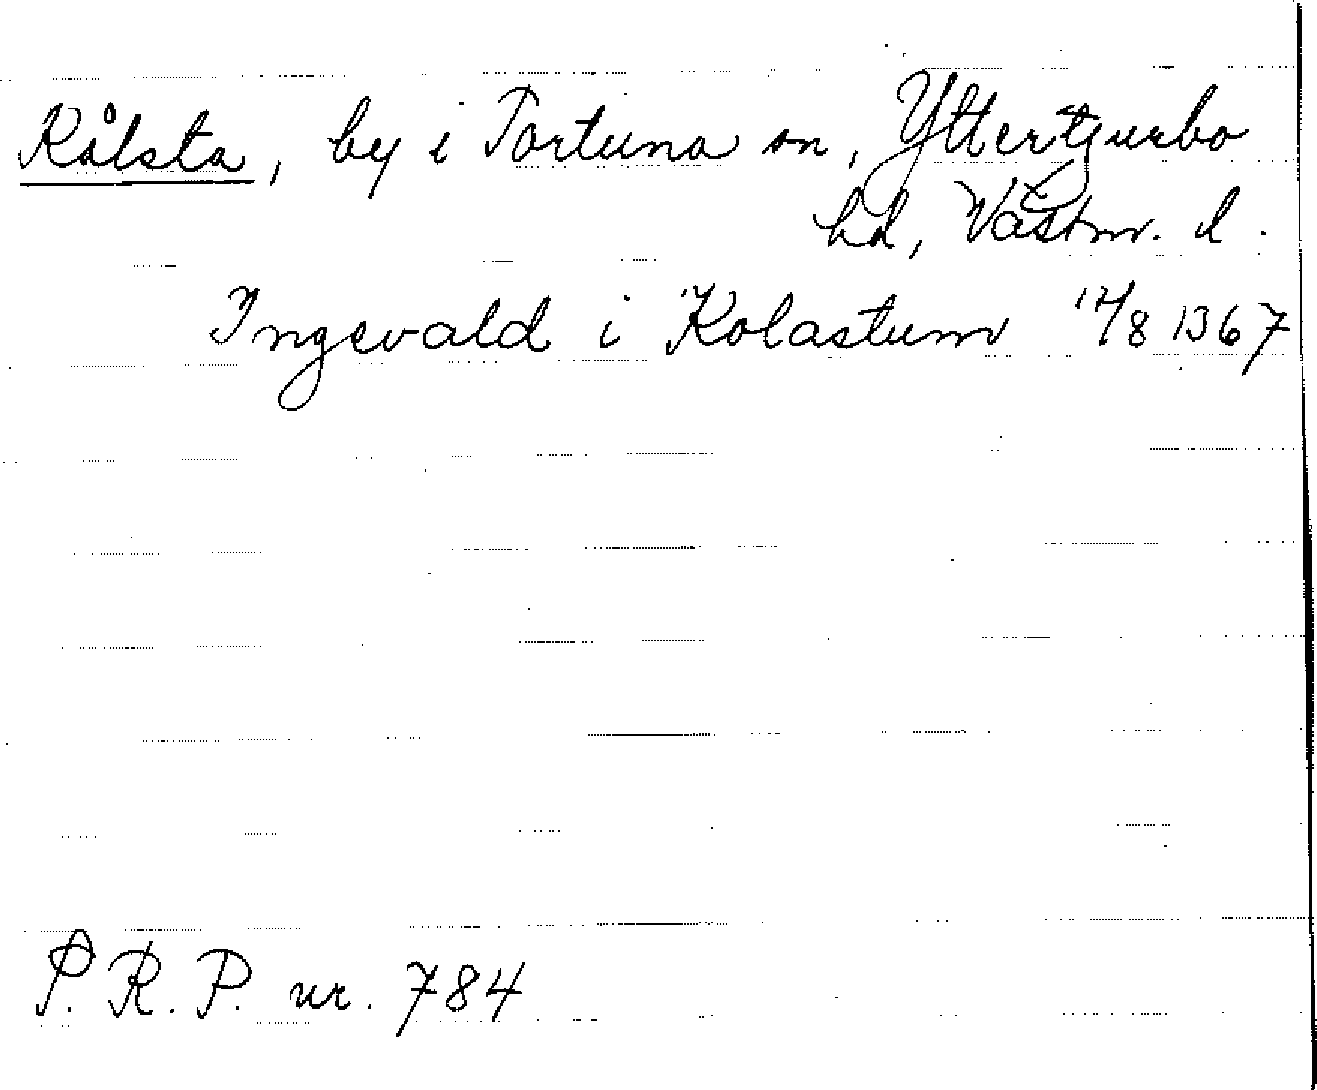 Kålsta, by i Tortuna sn, Yttertjurbo
hd, Västm. l.
Ingevald i Kolastum 12/8 1367
P.R.P. nr. 784